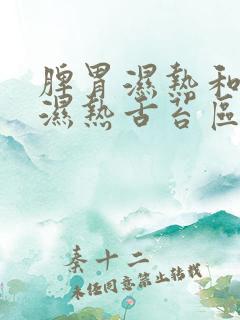 脾胃濕熱和
濕熱舌苔區
秦十二
未經同意禁止轉載